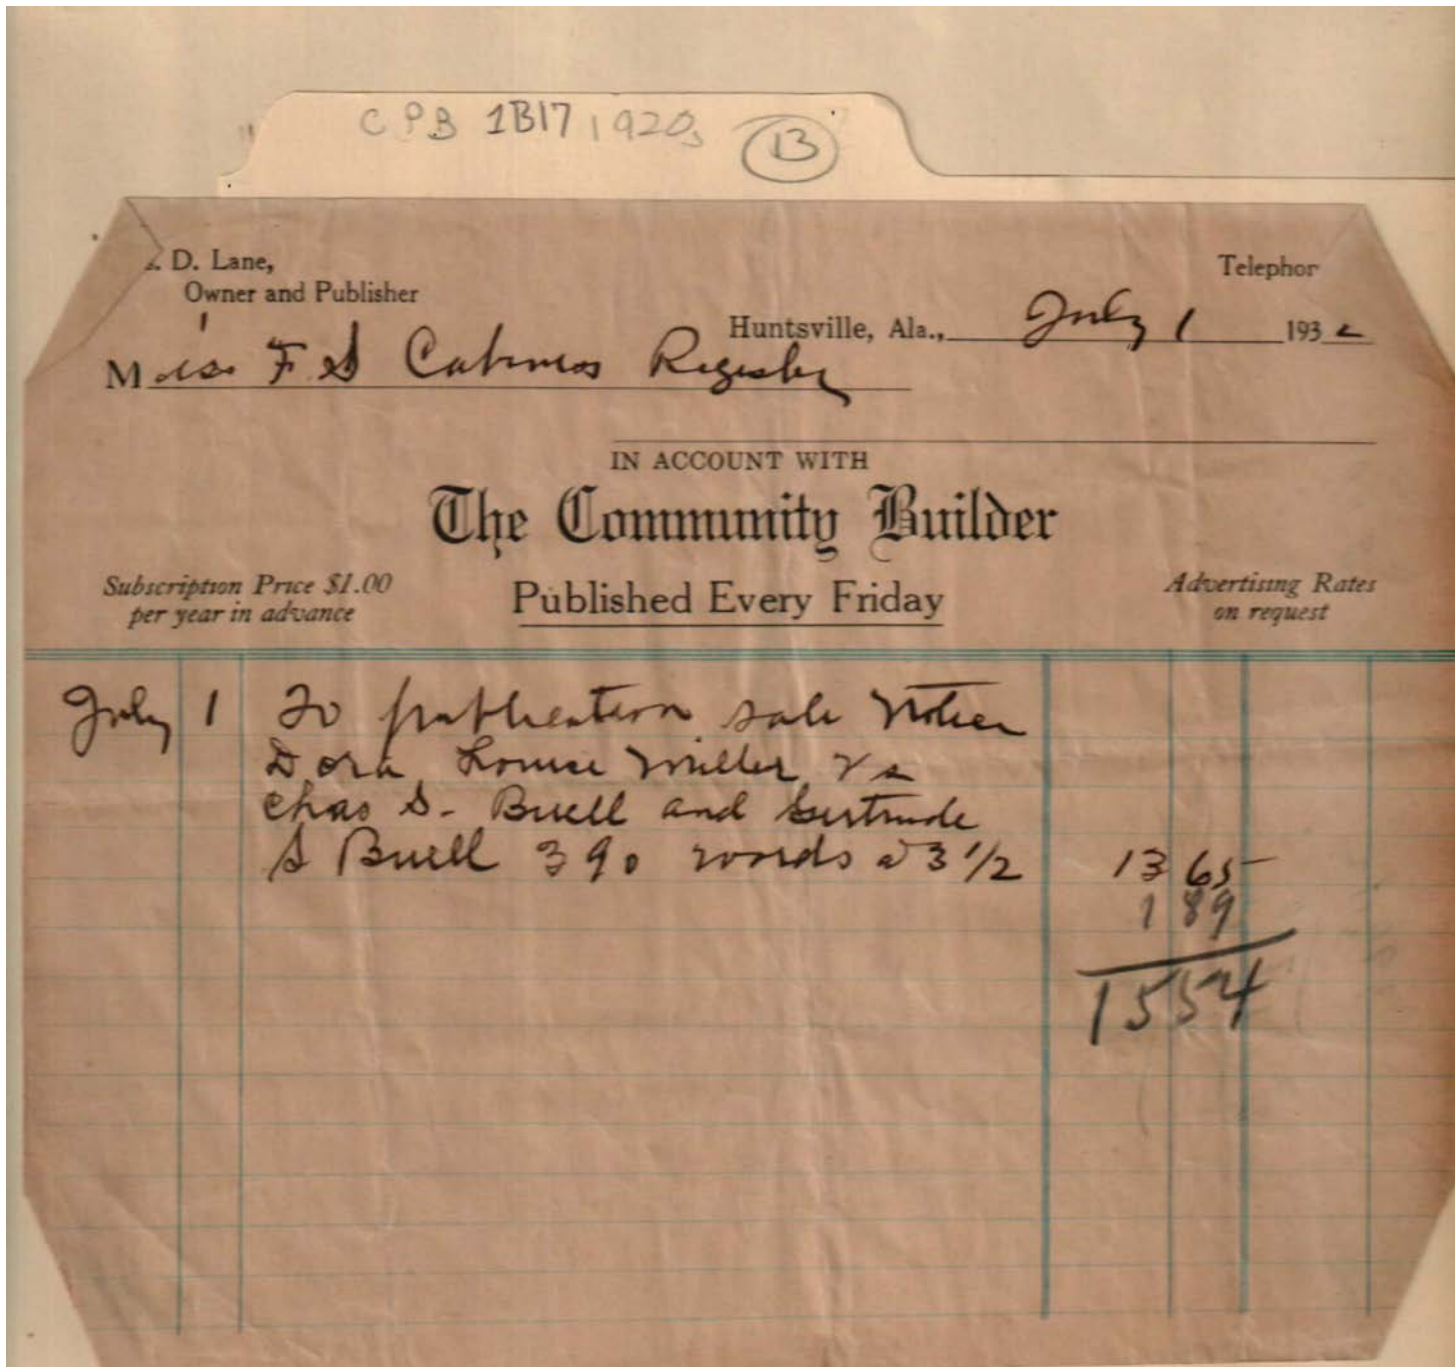 CPB 1B17 1920s 13
D. Lane,
Owner and Publisher
Telephon
Huntsville, Ala., July 1 1932
Miss F S Cabaniss Register
IN ACCOUNT WITH
The Community Builder
Subscription Price $1.00
per year in advance
Published Every Friday
Advertising Rates
on request
July 1 To publication sale Notice
Dora Louise Miller Vs
Chas S. Buell and Gertrude
S Buell 390 words @ 3 1/2 13 65
1 89
15 54